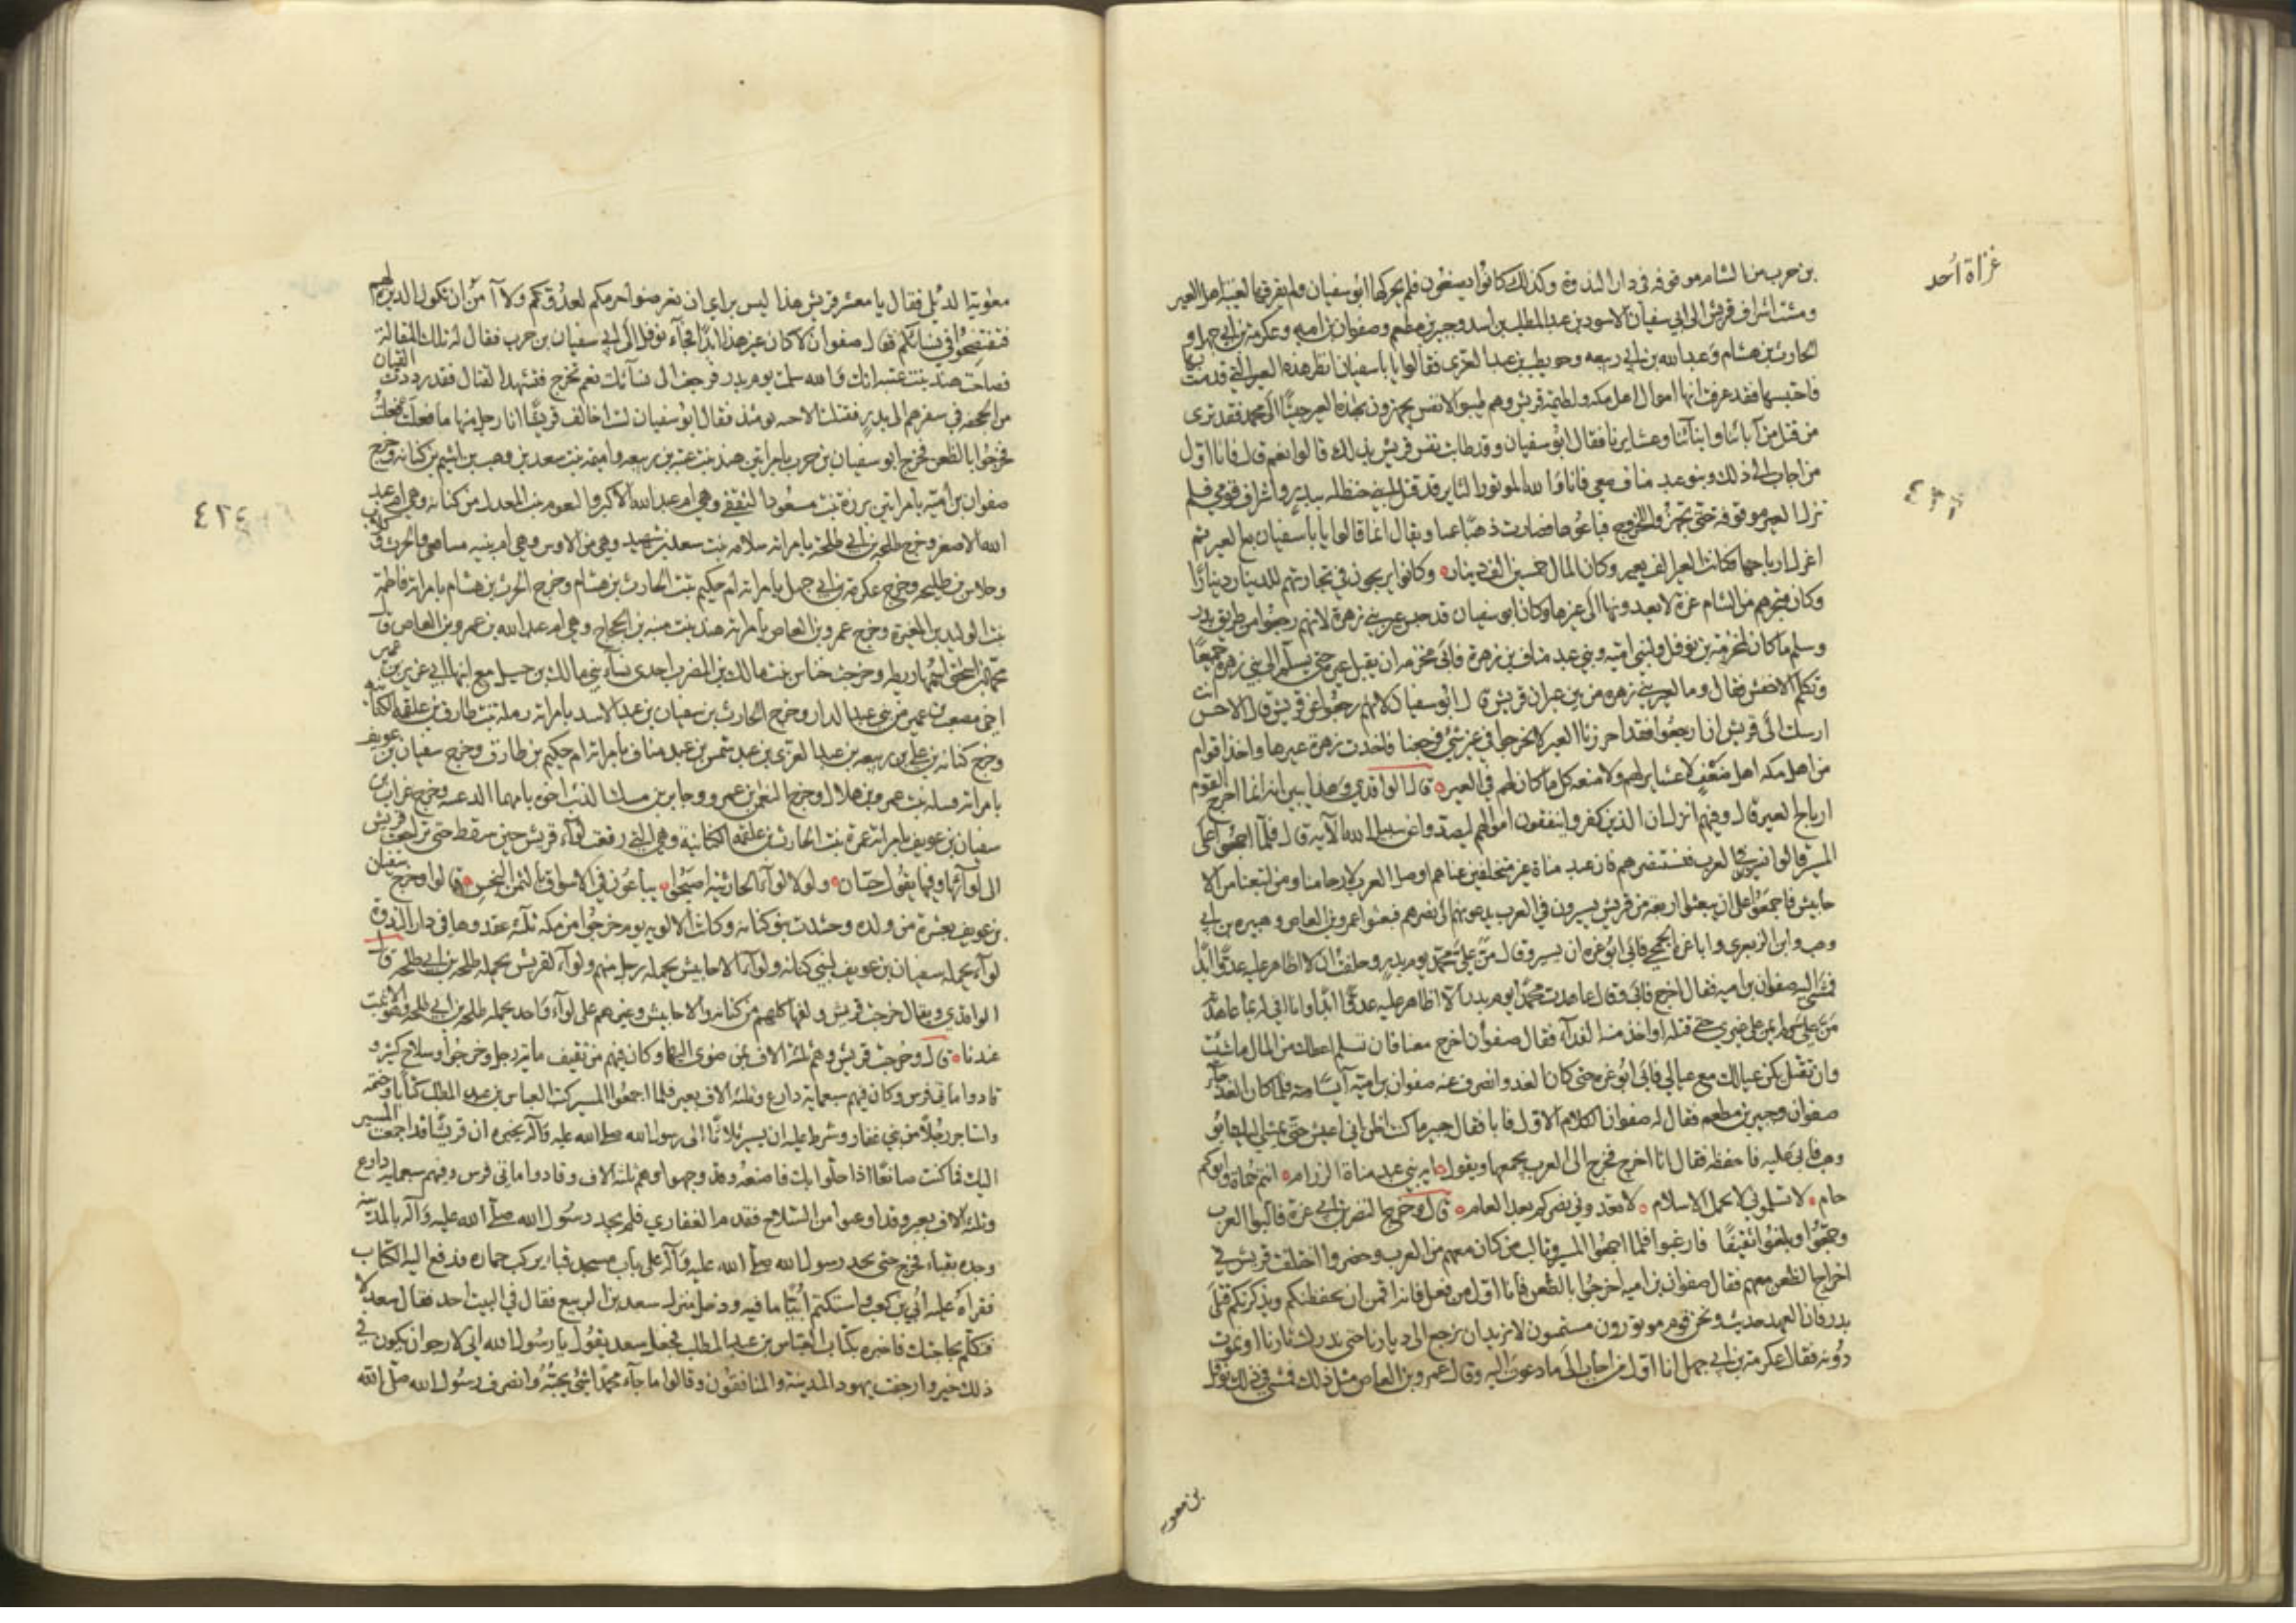 غزاة أحد
بن حرب من الشام موقوفه في دار الندوة وكذلك كانوا يصنعون فلم يحركها ابو سفيان ولم يفرقها لغيبة اهل العير
ومشت اشراف قريش الى ابي سفيان الاسود بن عبد المطلب بن اسد وجبير بن مطعم وصفوان بن اميه وعكرمة بن ابي جهل و
الحارث بن هشام وعبد الله بن ابي ربيعه وحويطب بن عبد العزى فقالوا يا باسفيان انظر هذه العير التي قدمت بها
فاحتبسها فقد عرفت انها اموال اهل مكه ولطيمة قريش وهم طيبوا الانفس يجهزون بهذه العير جيشا الى محمد فقد ترى
من قتل من آبائنا وابنآئنا وعشايرنا فقال ابو سفيان وقد طابت نفس قريش بذلك قالوا نعم قال فانا اول
من اجاب الى ذلك وبنو عبد مناف معي فانا والله الموتور الثاير قد قتل ابني حنظله ببدر واشراف قومي فلم
تزل العير موقوفه حتى تجهزوا للخروج فباعوها فصارت ذهبا عينا ويقال انما قالوا يا باسفيان بع العير ثم
اعزل ارباحها فكانت العير الف بعير وكان المال خمسين الف دينار وكانوا يربحون في تجارتهم للدينار دينارا
وكان متجرهم من الشام غزة لا يعدونها الى غيرها وكان ابو سفيان قد حبس عير بني زهرة لانهم رجعوا من طريق بدر
وسلم ما كان لمخرمة بن نوفل ولبني ابيه وبني عبد مناف بن زهرة فابى مخرمه ان يقبل عيره حتى يسلم الى بني زهرة جميعا
وتكلم الاخنس فقال وما لعير بني زهره من بين عيران قريش قال ابو سفيان لانهم رجعوا عن قريش قال الاخنس انت
ارسلت الى قريش ان ارجعوا فقد احرزنا العير لا تخرجوا في غير شي فرجعنا فاخذت زهرة عيرها واخذ اقوام
من اهل مكه اهل ضعف لا عشاير لهم ولا منعه كل ما كان لهم في العير قال الواقدي وهذا يبين انه انما اخرج القوم
ارباح العير قال وفيهم انزل ان الذين كفروا ينفقون اموالهم ليصدوا عن سبيل الله الآية قال فلما اجمعوا على
المسير قالوا نسير في العرب فنستنصرهم فان عبد مناة غير متخلفين عنا هم اوصل العرب لارحامنا ومن اتبعنا من الا
حابيش فاجمعوا على ان يبعثوا اربعة من قريش يسيرون في العرب يدعونهم الى نصرهم فبعثوا عمرو بن العاص وهبيره بن ابي
وهب وابن الزبعرى وابا غرة الجمحي فابى ابو غره ان يسير وقال من علي محمد يوم بدر وحلفت ان لا اظاهر عليه عدوا ابدا
فمشى اليه صفوان بن اميه فقال اخرج فابى وقال عاهدت محمدا يوم بدر الا اظاهر عليه عدوا ابدا وانا افي له بما عاهدته
من علي ولم يمن على غيري حتى قتله او اخذ منه الفدآء فقال صفوان اخرج معنا فان تسلم اعطك من المال ما شئت
وان تقتل يكن عيالك مع عيالي فابى ابو غره حتى كان الغد وانصرف عنه صفوان بن امية آيسا منه فلما كان الغد جآءه
صفوان وجبير بن مطعم فقال له صفوان الكلام الاول فابا فقال جبير ما كنت اظن اني اعيش حتى يمشي اليك ابو
وهب فابى عليه فاحفظه فقال انا اخرج فخرج الى العرب يجمعها ويقول ايه بني عبد مناة الرزام انتم حماة وابوكم
حام لا تسلموني لا يحل الاسلام لا تعدوني نصركم بعد العام قال وخرج النضر بن ابي غرة فالبوا العرب
وجمعوا وبلغوا ثقيفا فارغبوا فلما اجمعوا المسير وتالب من كان معهم من العرب وحضروا اختلفت قريش في
اخراج الظعن معهم فقال صفوان بن اميه اخرجوا بالظعن فانا اول من فعل فانه اقمن ان يحفظنكم ويذكرنكم قتلى
بدر فان العهد حديث ونحن قوم موتورون مستميتون لا نريد ان نرجع الى ديارنا حتى ندرك ثارنا او نموت
دونه فقال عكرمة بن ابي جهل انا اول من اجاب الى ما دعوت اليه وقال عمرو بن العاص مثل ذلك فمشى في ذلك نوفل
بن معويه
معوية الديلي فقال يا معشر قريش هذا ليس براي ان تعرضوا حرمكم لعدوكم ولا آمن ان تكون الدبرة لهم
فتفتضحوا في نسائكم فقال صفوان لا كان غير هذا ابدا فجآء نوفل الى ابي سفيان بن حرب فقال له تلك المقالة
فصاحت هند بنت عتبه انك والله سلمت يوم بدر فرجعت الى نسآئك نعم نخرج فنشهد القتال فقد ردت القيان
من الجحفه في سفرهم الى بدر فقتلت الاحبه يومئذ فقال ابو سفيان لست اخالف قريشا انا رجل منها ما فعلت فعلت
فخرجوا بالظعن فخرج ابو سفيان بن حرب بامراتين هند بنت عتبه بن ربيعه واميمه بنت سعد بن وهب بن اشيم بن كنانه وخرج
صفوان بن امية بامراتين برزة بنت مسعود الثقفي وهي ام عبد الله الاكبر والبغوم بنت المعدل من كنانه وهي ام عبد
الله الاصغر وخرج طلحه بن ابي طلحة بامراته سلافه بنت سعد بن شهيد وهي من الاوس وهي ام بنيه مسافع والحرث وكلاب
وجلاس بن طلحه وخرج عكرمة بن ابي جهل بامراته ام حكيم بنت الحارث بن هشام وخرج الحرث بن هشام بامراته فاطمة
بنت الوليد بن المغيرة وخرج عمرو بن العاص بامراته هند بنت منبه بن الحجاج وهي ام عبد الله بن عمرو بن العاص قال
محمد بن اسحق اسمها ريطه وخرجت خناس بنت مالك بن المضرب احدى نسآء بني مالك بن حسل مع ابنها ابي عزيز بن عمير
اخي مصعب بن عمير من بني عبد الدار وخرج الحارث بن سفيان بن عبد الاسد بامراته رملة بنت طارق بن علقمه الكنانيه
وخرج كنانه بن علي بن ربيعه بن عبد العزى بن عبد شمس بن عبد مناف بامراته ام حكيم بن طارق وخرج سفيان بن عويف
بامراته بنت عمرو بن هلال وخرج النعمن بن عمرو وجابر بن مسك الذئب اخوه بامهما الدغنيه وخرج غراب بن
سفيان بن عويف بامراته عمرة بنت الحارث بن علقمه الكنانيه وهي التي رفعت لوآء قريش حين سقط حتى تراجعت قريش
الى لوآئها وفيها يقول حسان ولولا لوآء الحارثية اصبحوا يباعون في الاسواق بالثمن البخس قالوا وخرج سفيان
بن عويف بعشرة من ولده وحشدت بنو كنانه وكانت الالويه يوم خرجوا من مكه ثلثه عقدوها في دار الندوة
لوآء يحمله سفيان بن عويف لبني كنانه ولوآء الاحابيش يحمله رجل منهم ولوآء لقريش يحمله طلحه بن ابي طلحه قال
الواقدي ويقال خرجت قريش ولفها كلهم من كنانه والاحابيش وغيرهم على لوآء واحد يحمله طلحه بن ابي طلحه وهو الاثبت
عندنا قال وخرجت قريش وهم ثلثة الاف بمن ضوى اليها وكان فيهم من ثقيف مائة رجل وخرجوا وسلاح كثير و
قادوا مايتي فرس وكان فيهم سبعماية دارع وثلثه الاف بعير فلما اجمعوا المسير كتب العباس بن عبد المطلب كتابا وختمه
واستاجر رجلا من بني غفار وشرط عليه ان يسير ثلاثا الى رسول الله صلى الله عليه وآله يخبره ان قريشا قد اجمعت المسير
اليك فما كنت صانعا اذا حلوا بك فاصنعه وقد وجهوا وهم ثلثة الاف وقادوا مايتي فرس وفيهم سبعمايه دارع
وثلثه الاف بعير وقد اوعبوا من السلاح فقدم الغفاري فلم يجد رسول الله صلى الله عليه وآله بالمدينه
وجده بقباء فخرج حتى يجد رسول الله صلى الله عليه وآله على باب مسجد قباء يركب حماره فدفع اليه الكتاب
فقراه عليه ابي بن كعب واستكتم ابيا ما فيه ودخل منزل سعد بن الربيع فقال في البيت احد فقال سعد لا
فتكلم بحاجتك فاخبره بكتاب العباس بن عبد المطلب فجعل سعد يقول يا رسول الله اني لارجو ان يكون في
ذلك خير وارجفت يهود المدينة والمنافقون وقالوا ما جآء محمدا شئ يحبه وانصرف رسول الله صلى الله
٤٢٤